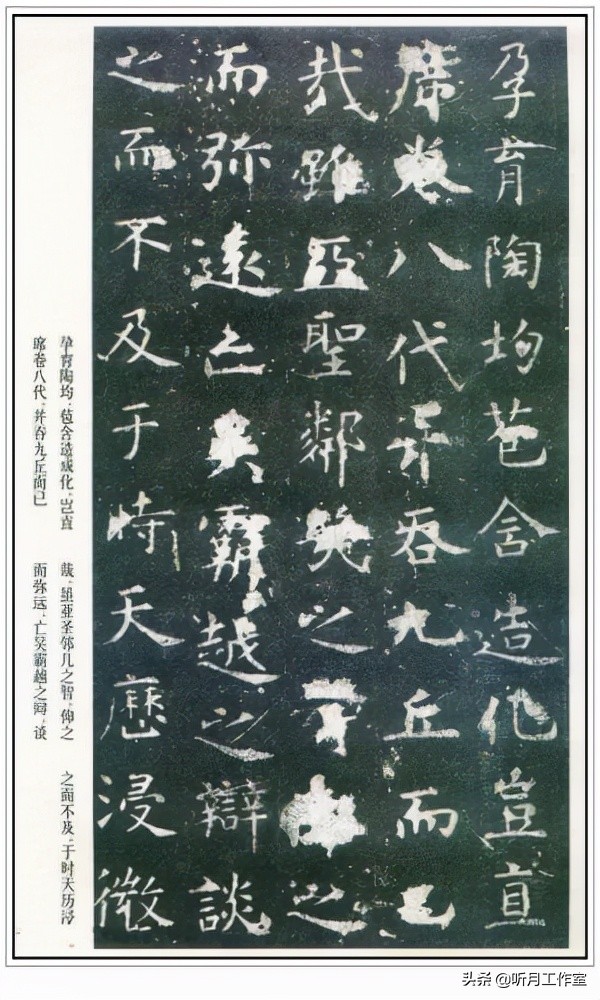 孕育陶均苞含造化豈直
席卷八代并吞九丘而已
哉雖亞聖鄰幾之智仰之
而弥遠亡吳霸越之辯談
之而不及于時天曆浸微
孕育陶均，苞含造化，岂直
席卷八代，并吞九丘而已
哉。虽亚圣邻几之智，仰之
而弥远，亡吴霸越之辩，谈
之而不及。于时天历浸
头条 @听月工作室